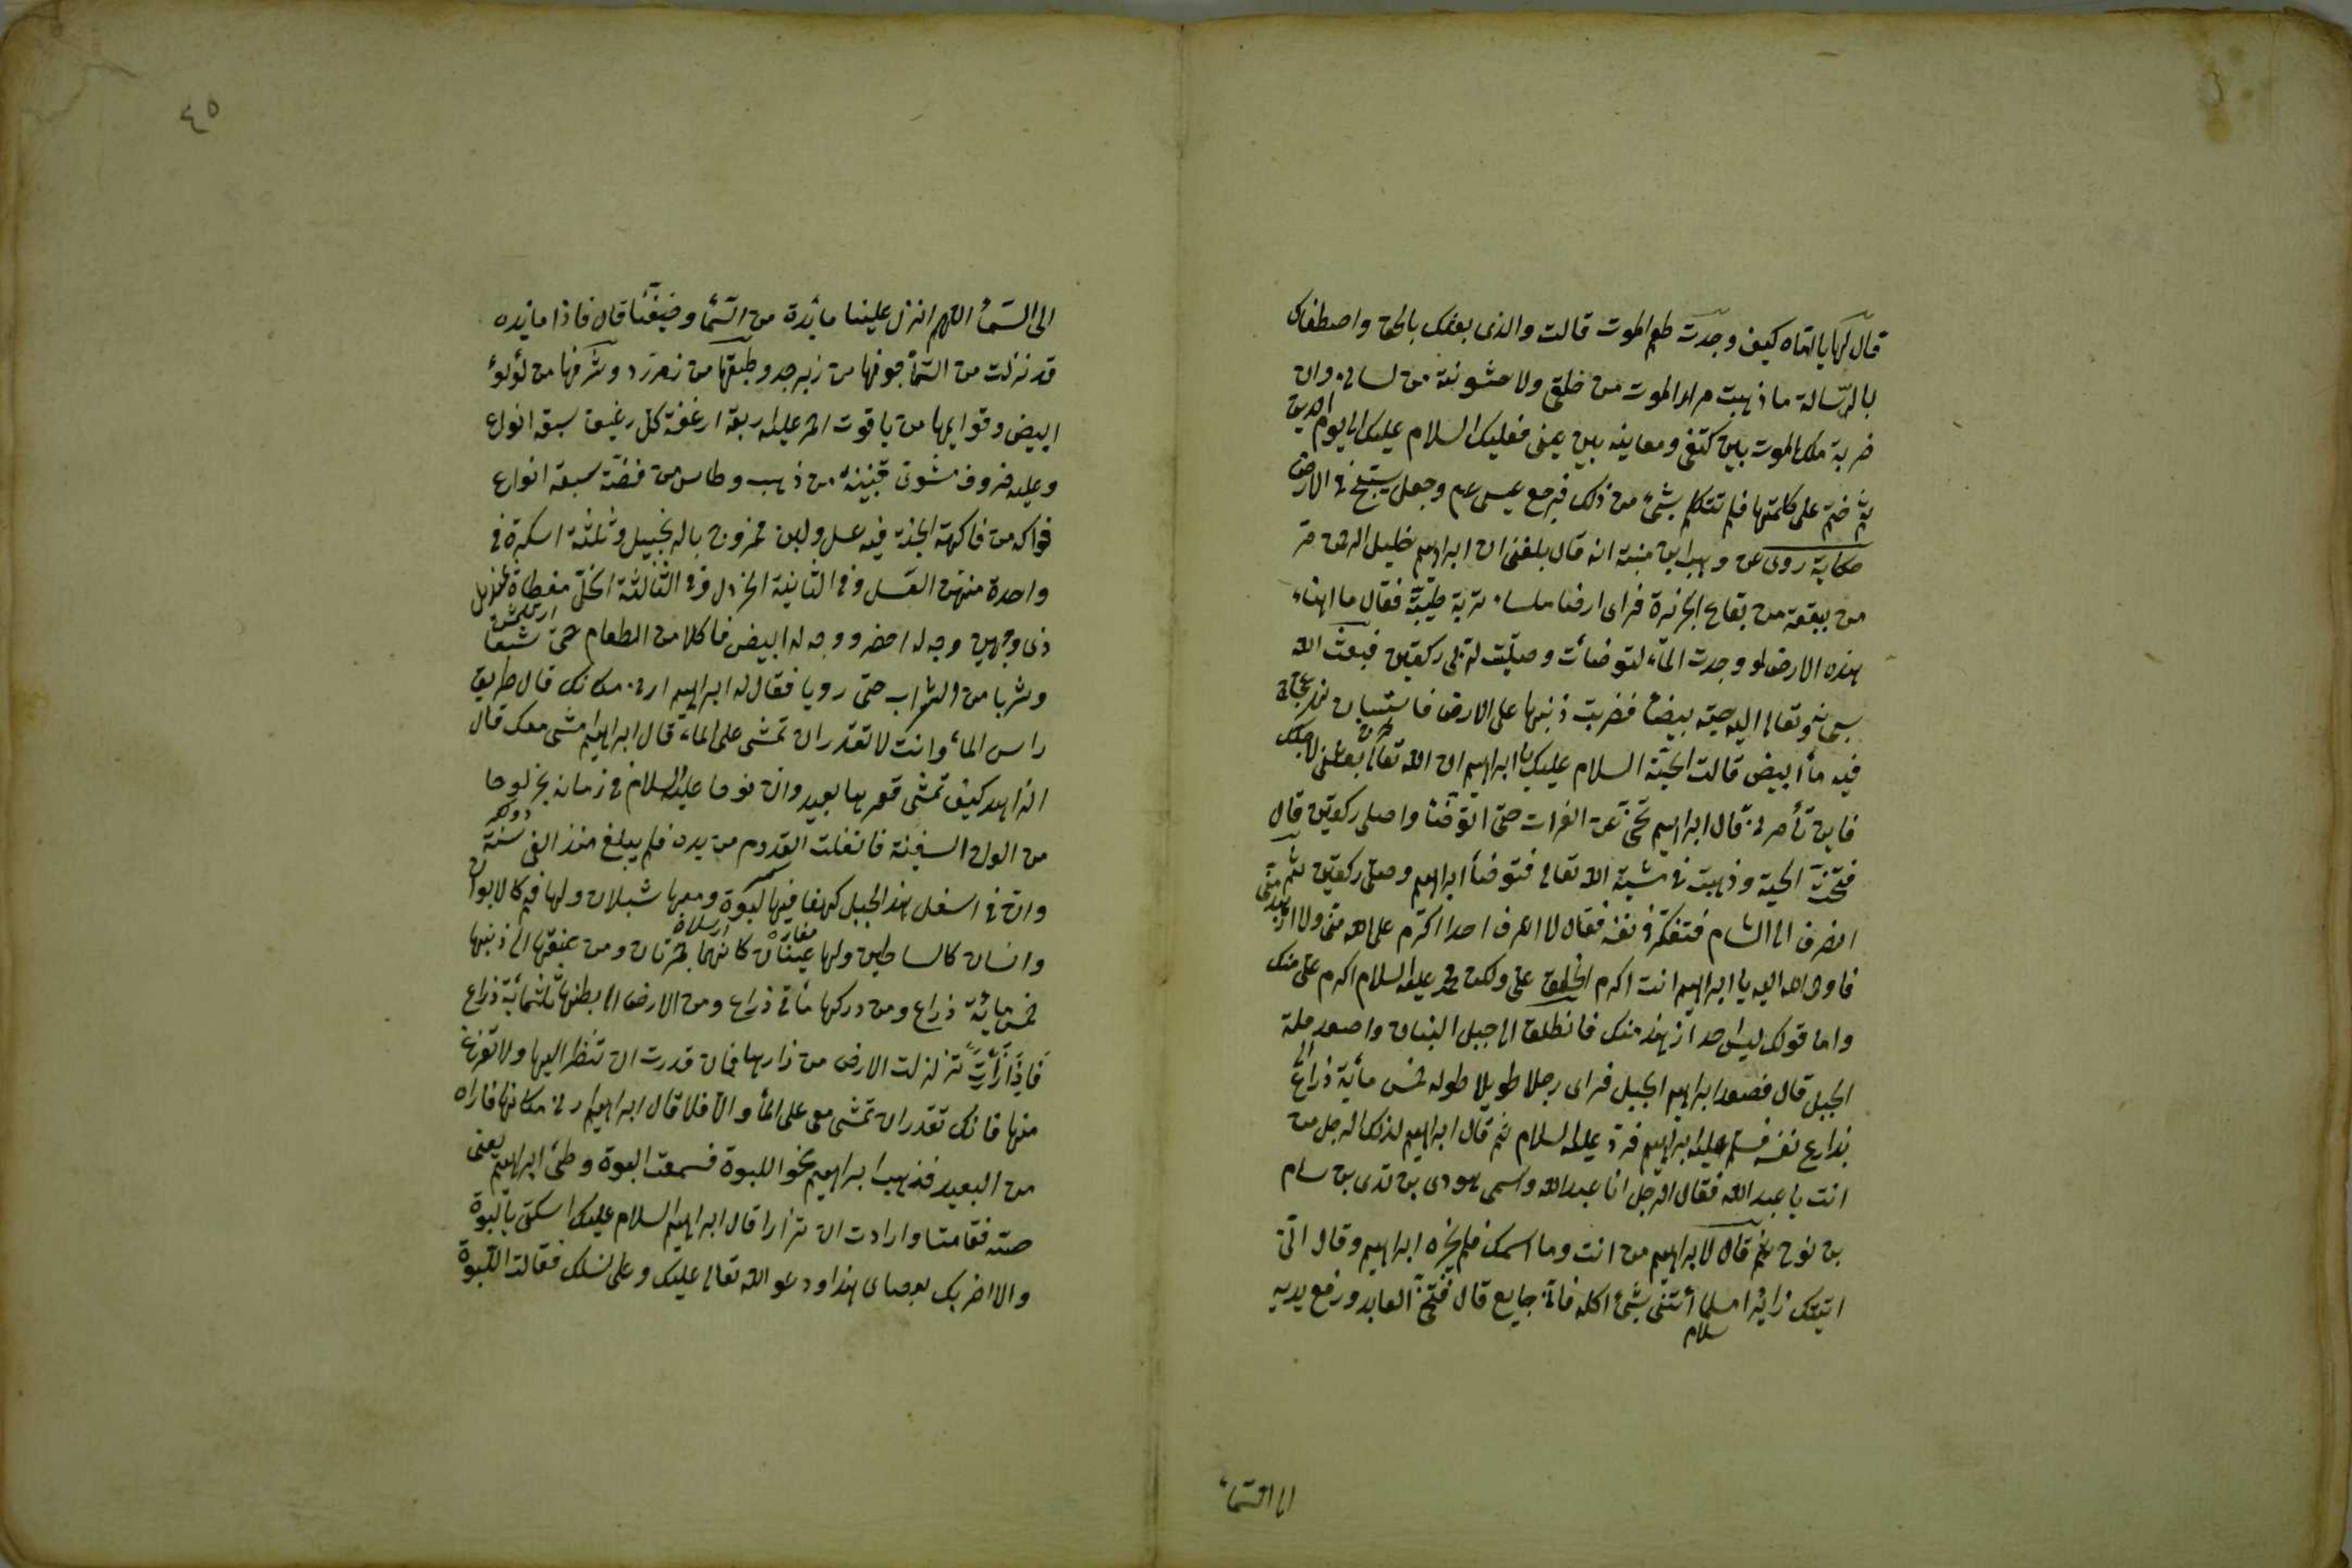 قال لها يا امّاه كيف وجدت طعم الموت قالت والذى بعثك بالحق واصطفاك
بالرّسالة ما ذهبت مرار الموت من حلقى ولا خشونته من لسانى وان
ضربة ملك الموت بين كتفى ومعاينه بين عينى فعليك السلام عليك الى يوم الدين
ثم ختم على كلمتها فلم تتكلم بشئ من ذلك فرجع عيسى عم وجعل يسيح فى الارض
حكاية روى عن وهب ابن منبه انه قال بلغنى ان ابراهيم خليل الرحمن مر
من بقعة من بقاع الجزيرة فراى ارضا ملساء تربة طيّبة فقال ما اهناء
هذه الارض لو وجدت الماء لتوضأت وصلّيت لربى ركعتين فبعث الله
سبحانه وتعالى اليه حية بيضاء فضربت ذنبها على الارض
فيه ماء ابيض قالت الحيّة السلام عليك يا ابراهيم ان الله تعالى بعثنى لاجلك
فاين تأمرنى قال ابراهيم تنحّى عن الفرات حتى اتوضّأ واصلى ركعتين قال
فتنحّت الحية وذهبت فى مشية الله تعالى فتوضأ ابراهيم وصلى ركعتين ثم
انصرف الى الشام فتفكّر فى نفسه فقال لا اعرف احدا اكرم على الله منى ولا ازهد منى
فاوحى الله اليه يا ابراهيم انت اكرم الخلق علىّ ولكن محمد عليه السلام اكرم علىّ منك
واما قولك ليس احد ازهد منك فانطلق الى جبل البنان واصعد قلة
الجبل قال فصعد ابراهيم الى الجبل فراى رجلا طويلا طوله خمس مأية ذراع
بذراع نفسه فسلم عليه ابراهيم فردّ عليه السلام ثم قال ابراهيم لذلك الرجل من
انت يا عبد الله فقال الرجل انا عبد الله واسمى هودى بن تدى بن سام
بن نوح ثم قال لابراهيم من انت وما اسمك فلم يخبره ابراهيم وقال انّى
اتيتك زائرا أتنى بشئ اكله فانّى جايع قال فتنحّ العابد ورفع يديه
سلام
الى السّماء
٤٥
الى السّماء اللهم انزل علينا مائدة من السّماء وضيفنا قال فاذا مايده
قد نزلت من السّماء جوفها من زبرجد وطبقها من زمرّد وشرفها من لؤلوء
ابيض وقوايمها من ياقوت احمر عليه اربعة ارغفة كل رغيف سبعة انواع
وعليه خروف مشوى من ذهب وطاس من فضّة سبعة انواع
فواكه من فاكهة الجنة فيه عسل ولبن ممزوج بالزنجبيل وثلثة اسكرة فى
واحدة منهن العسل وفى الثانية الخردل وفى الثالثة الخلّ مغطاة بمنديل
ذى وجهين وجه له اخضر ووجه له ابيض فاكلا من الطعام حتى شبعا
وشربا من الشراب حتى رويا فقال له ابراهيم ارنى مكانك قال طريق
راس الماء وانت لا تقدر ان تمشى على الماء قال ابراهيم امشى معك قال
الزاهد كيف تمشى قعرها بعيد وان نوحا عليه السلام فى زمانه نجر لوحا
من الواح السفينة فانفلت القدوم من يده فلم يبلغ منذ الفى سنة
وان فى اسفل هذا الجبل كهفا فيها لبوة ومعها شبلان ولها فم كالابوان
وانسان كالساطين ولها عينان كانهما بحرتان ومن عنقها الى ذنبها
خمس مائة ذراع ومن دركها مأتى ذراع ومن الارض الى بطنها ثلثمائة ذراع
فَاِذَا زَأَرَتْ تزلزلت الارض من زارها فان قدرت ان تنظر اليها ولا تفزع
منها فانك تقدر ان تمشى معى على الماء والّا فلا قال ابراهيم ارنى مكانها فاراه
من البعيد فذهب ابراهيم نحو اللبوة فسمعت البوة وطئ ابراهيم يعنى
صته فقامتا وارادت ان تزأرا قال ابراهيم السلام عليك اسكتى يا لبوة
والا اضربك بعصاى هذا وادعو الله تعالى عليك وعلى نسلك فقالت اللبوة